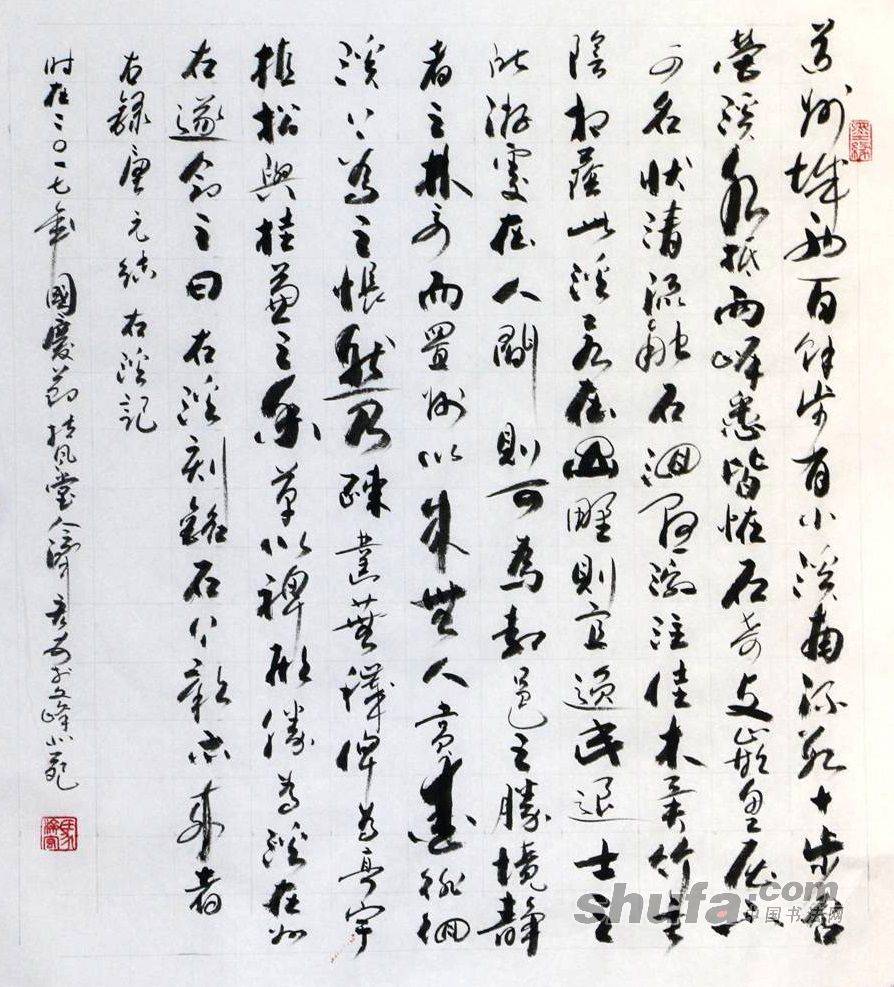 道州城西百餘步有小溪南流數十步合
營溪水抵兩岸悉皆怪石攲嵌盤屈不
可名狀清流觸石洄懸激注佳木異竹垂
陰相蔭此溪若在山野則宜逸民退士之
所游處在人間則可為都邑之勝境靜
者之林亭而置州以來無人賞愛徘徊
溪上為之悵然乃疏鑿蕪穢俾為亭宇
植松與桂兼之香草以裨形勝為溪在州
右遂命之曰右溪刻銘石上彰示來者
右錄唐元結右溪記
時在二〇一七年國慶節扶風堂人於五峰小苑
shufa.com
中国书法网